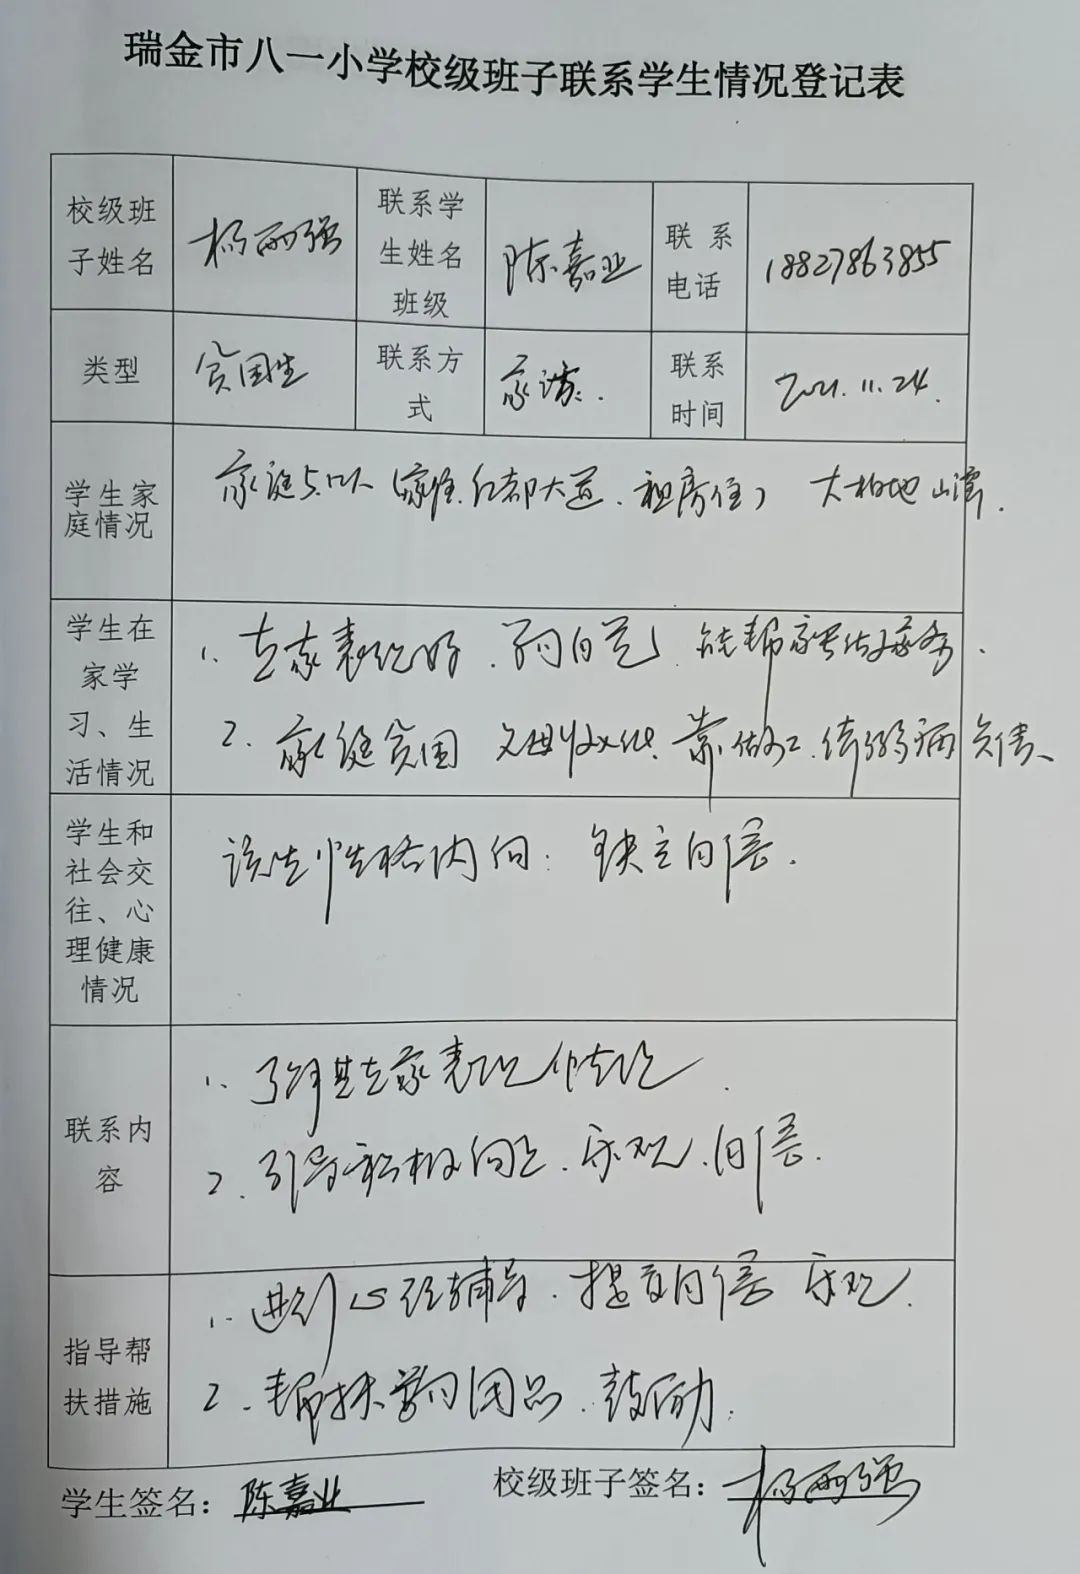 瑞金市八一小学校级班子联系学生情况登记表
校级班子姓名 杨丽强 联系学生姓名班级 陈嘉业 联系电话 18827863855
类型 贫困生 联系方式 家访. 联系时间 2021.11.24.
学生家庭情况 家庭5口人(家住红都大道.租房住) 大柏地
学生在家学习、生活情况
1. 在家表现好.学习自觉.能帮家长做家务.
2. 家庭贫困 父母收入低.靠做工.体弱病 负债、
学生和社会交往、心理健康情况
该生性格内向: 缺乏自信.
联系内容
1. 了解其在家表现情况.
2. 引导积极向上.乐观.自信.
指导帮扶措施
1. 进行心理辅导.提高自信 乐观.
2. 帮扶学习用品.鼓励.
学生签名: 陈嘉业 校级班子签名: 杨丽强